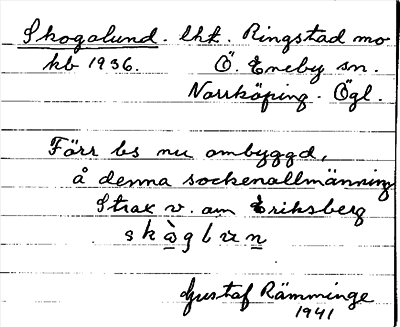 Skogalund. lht. Ringstad mo
kb 1936. Ö. Eneby sn.
Norrköping. Ögl.
Förr bs nu ombyggd,
å denna sockenallmänning
Strax v. om Eriksberg
skòglun
Gustaf Rämminge
1941